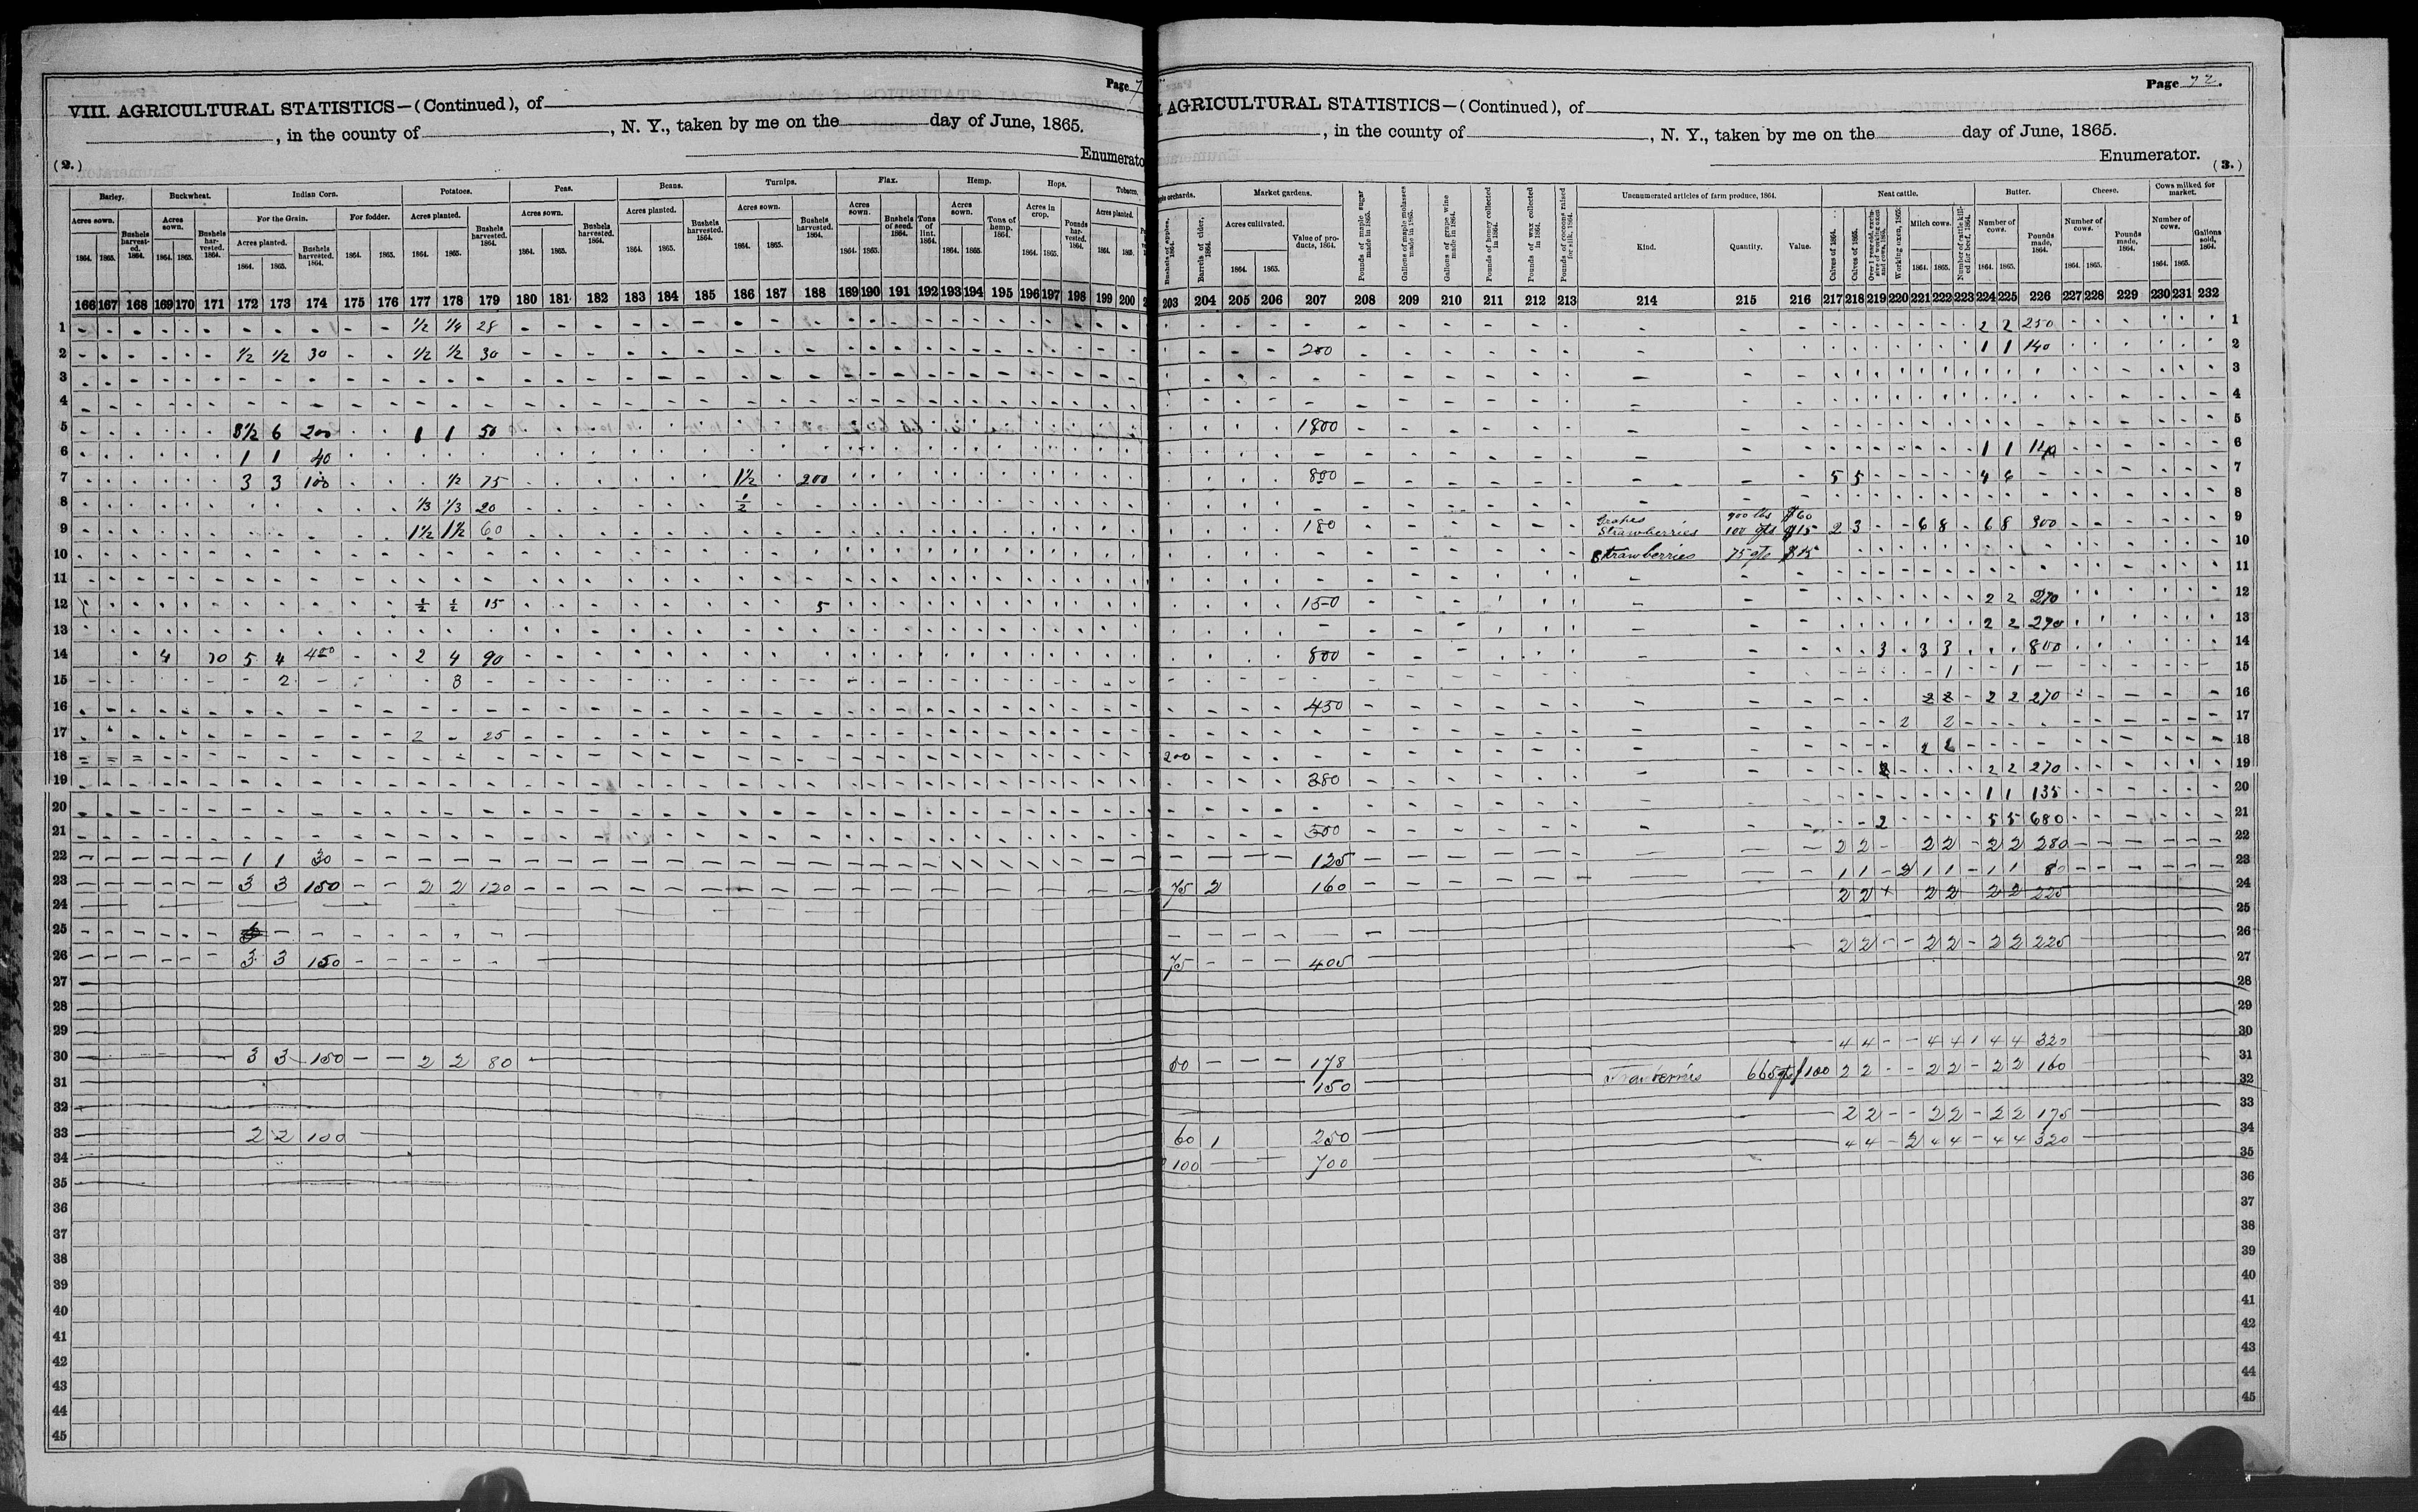 Page 7
VIII. AGRICULTURAL STATISTICS—(Continued), of
, in the county of , N. Y., taken by me on the day of June, 1865.
Enumerato
(2.)
Barley. Buckwheat. Indian Corn. Potatoes. Peas. Beans. Turnips. Flax. Hemp. Hops. Tobacco.
Acres sown. Bushels harvested. 1864. Acres sown. Bushels harvested. 1864. For the Grain. For fodder. Acres planted. Bushels harvested. 1864. Acres sown. Bushels harvested. 1864. Acres planted. Bushels harvested. 1864. Acres sown. Bushels harvested. 1864. Acres sown. Bushels of seed. 1864. Tons of lint. 1864. Acres sown. Tons of hemp. 1864. Acres in crop. Pounds harvested. 1864. Acres planted.
Acres planted. Bushels harvested. 1864.
166 167 168 169 170 171 172 173 174 175 176 177 178 179 180 181 182 183 184 185 186 187 188 189 190 191 192 193 194 195 196 197 198 199 200
1 ½ ¼ 28
2 ½ ½ 30 ½ ½ 30
3
4
5 8½ 6 200 1 1 50
6 1 1 40
7 3 3 100 ½ 75 1½ 200
8 ⅓ ⅓ 20 ½
9 1½ 1½ 60
10
11
12 ½ ½ 15 5
13
14 4 70 5 4 400 2 4 90
15 2 3
16
17 2 25
18
19
20
21
22 1 1 30
23 3 3 150 2 2 120
24
25
26 3 3 150
27
28
29
30 3 3 150 2 2 80
31
32
33 2 2 100
34
35
36
37
38
39
40
41
42
43
44
45
Page 72.
AGRICULTURAL STATISTICS—(Continued), of
, in the county of , N. Y., taken by me on the day of June, 1865.
Enumerator.
(3.)
orchards. Market gardens. Unenumerated articles of farm produce, 1864. Neat cattle. Butter. Cheese. Cows milked for market.
Bushels of apples. 1864. Barrels of cider. 1864. Acres cultivated. Value of products, 1864. Pounds of maple sugar made in 1865. Gallons of maple molasses made in 1865. Gallons of grape wine made in 1864. Pounds of honey collected in 1864. Pounds of wax collected in 1864. Pounds of cocoons raised for silk, 1864. Kind. Quantity. Value. Calves of 1864. Calves of 1865. Over 1 year old, exclusive of working oxen and cows, 1865. Working oxen, 1865. Milch cows. Number of cattle killed for beef, 1864. Number of cows. Pounds made, 1864. Number of cows. Pounds made, 1864. Number of cows. Gallons sold, 1864.
203 204 205 206 207 208 209 210 211 212 213 214 215 216 217 218 219 220 221 222 223 224 225 226 227 228 229 230 231 232
2 2 250 1
200 1 1 140 2
3
4
1800 5
1 1 140 6
800 5 5 4 6 7
8
180 Grapes 900 lbs $60
Strawberries 100 qts $15 2 3 6 8 6 8 300 9
Strawberries 75 qts $15 10
11
150 2 2 270 12
2 2 290 13
800 3 3 3 800 14
1 1 15
450 2 2 2 2 270 16
2 2 17
200 18
380 2 2 270 19
1 1 135 20
500 2 5 5 680 21
125 2 2 2 2 2 2 280 22
75 2 160 1 1 2 1 1 1 1 80 23
2 2 2 2 2 2 225 24
25
2 2 2 2 2 2 225 26
75 405 27
28
29
4 4 4 4 1 4 4 320 30
50 178
150 665 qts $100 2 2 2 2 2 2 160 31
32
2 2 2 2 2 2 175 33
60 1 250 4 4 2 4 4 4 4 320 34
100 700 35
36
37
38
39
40
41
42
43
44
45